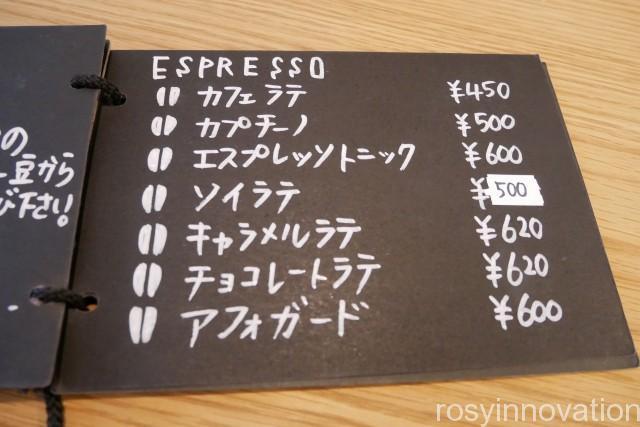 の
豆から
び下さい!
ESPRESSO
カフェラテ ¥450
カプチーノ ¥500
エスプレッソトニック ¥600
ソイラテ ¥500
キャラメルラテ ¥620
チョコレートラテ ¥620
アフォガード ¥600
rosyinnovation